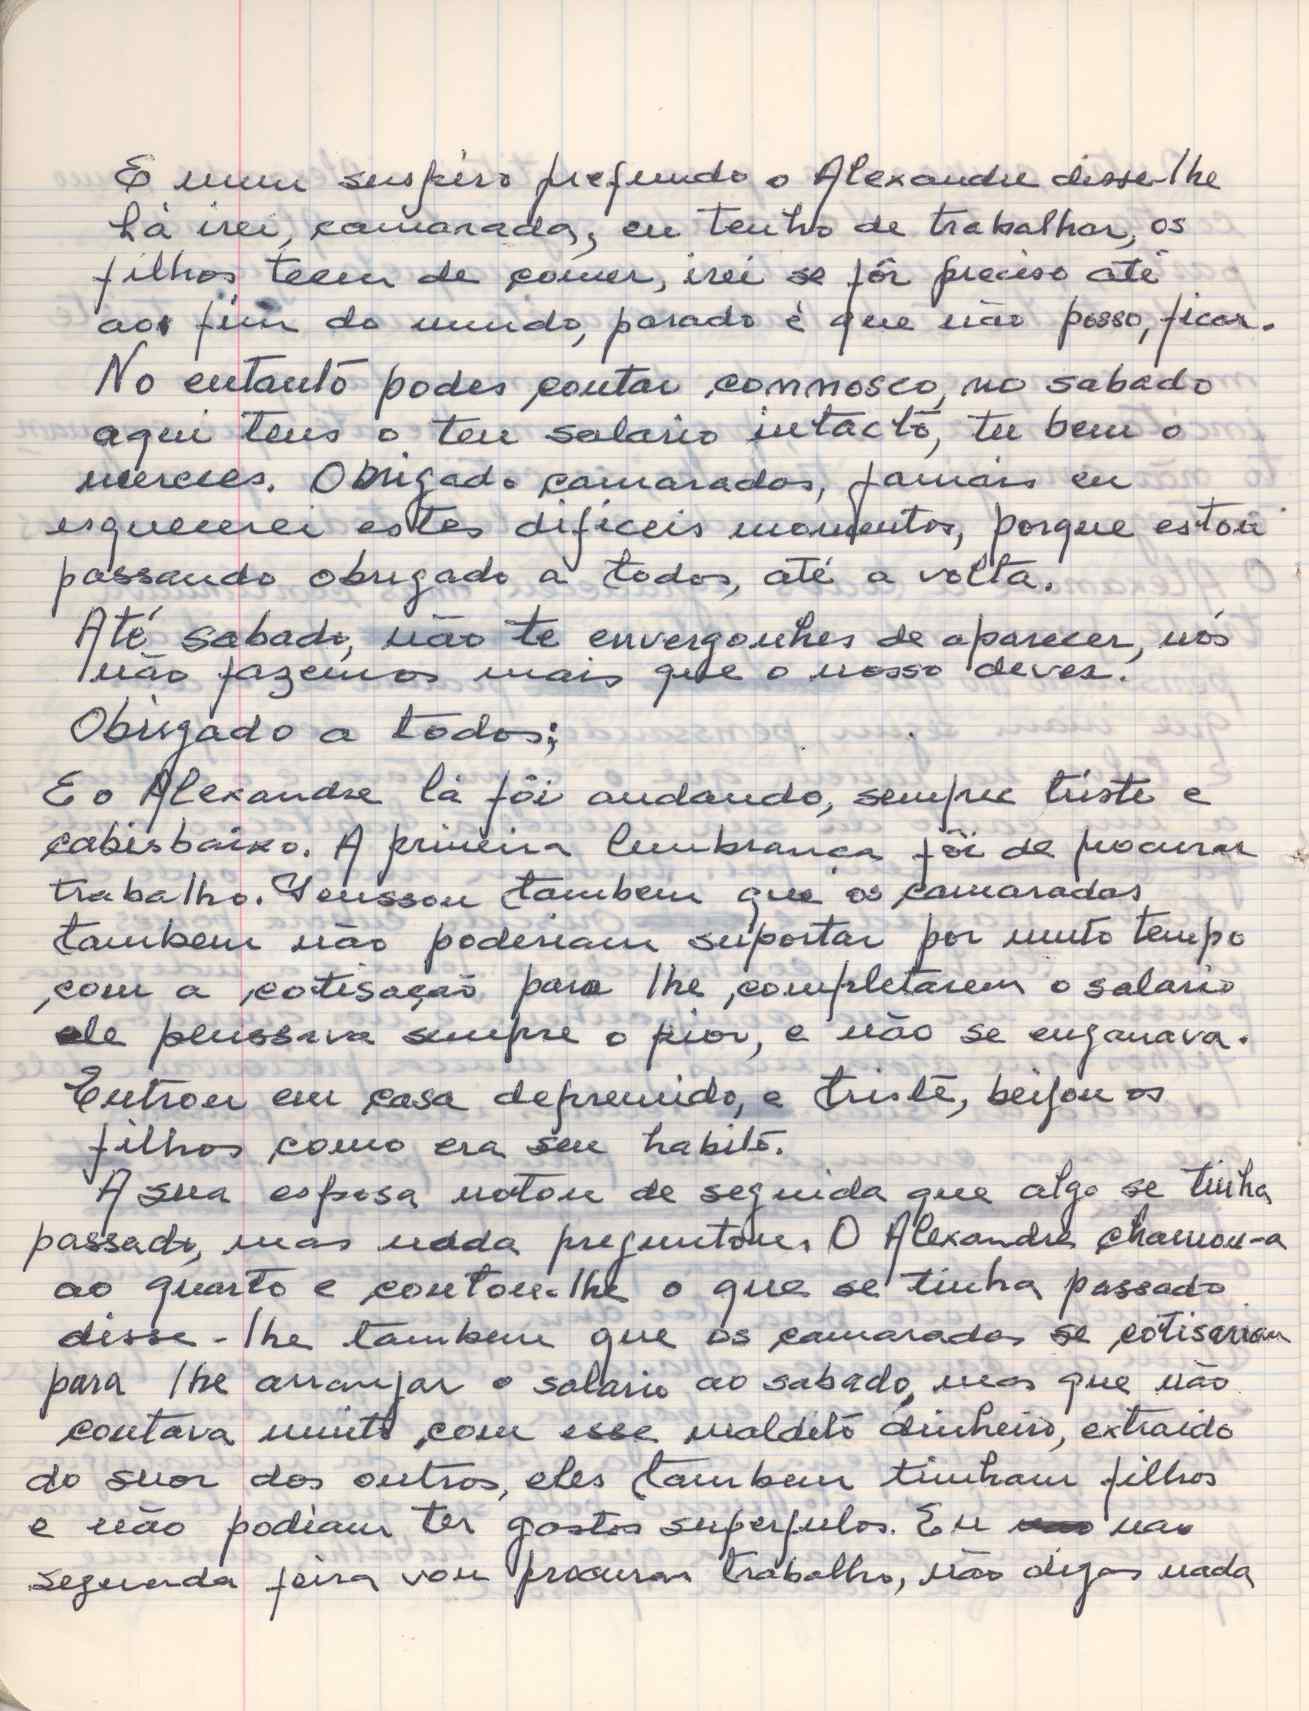 E num suspiro profundo o Alexandre disse-lhe
Lá irei, camarada, eu tenho de trabalhar, os
filhos teem de comer, irei se fôr preciso até
ao fim do mundo, parado é que não posso, ficar.
No entanto podes contar connosco, no sabado
aqui tens o teu salario intacto, tu bem o
mereces. Obrigado camaradas, jamais eu
esquecerei estes dificeis momentos, porque estou
passando obrigado a todos, até a volta.
Até sabado, não te envergonhes de aparecer, nós
não fazemos mais que o nosso dever.
Obrigado a todos;
E o Alexandre lá fôi andando, sempre triste e
cabisbaixo. A primeira lembrança fôi de procurar
trabalho. Penssou tambem que os camaradas
tambem não poderiam suportar por muto tempo
com a cotisação para lhe completarem o salario
ele penssava sempre o pior, e não se enganava.
Entrou em casa depremido, e triste, beijou os
filhos como era seu habito.
A sua esposa notou de seguida que algo se tinha
passado, mas nada preguntou. O Alexandre chamou-a
ao quarto e contou-lhe o que se tinha passado
disse-lhe tambem que os camaradas se cotisariam
para lhe arranjar o salario ao sabado, mas que não
contava muito com esse maldito dinheiro, extraido
do suor dos outros, eles tambem tinham filhos
e não podiam ter gastos superfulos. Eu na
segunda feira vou procurar trabalho, não digas nada